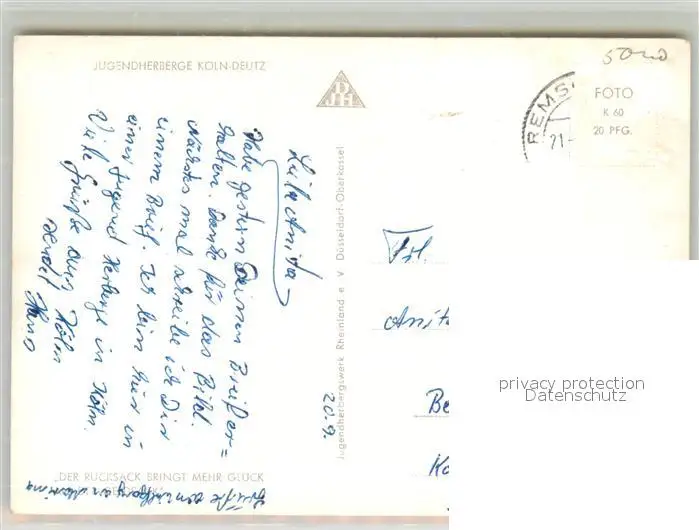 JUGENDHERBERGE KÖLN-DEUTZ
50
FOTO
K 60
20 PFG.
REMS
21-
DJH
Liebe Anita
Habe gestern Deinen Brief er=
halten. Danke für das Bild.
Nächstes mal schreibe ich Dir
einen Brief. Ich bin hier in
einer Jugend Herberge in Köln.
Viele Grüße aus Köln
sendet Hans
20.9.
Jugendherbergswerk Rheinland e V Düsseldorf-Oberkassel
Frl.
Anit
Be
Ka
privacy protection
Datenschutz
„DER RUCKSACK BRINGT MEHR GLÜCK
Grüße von